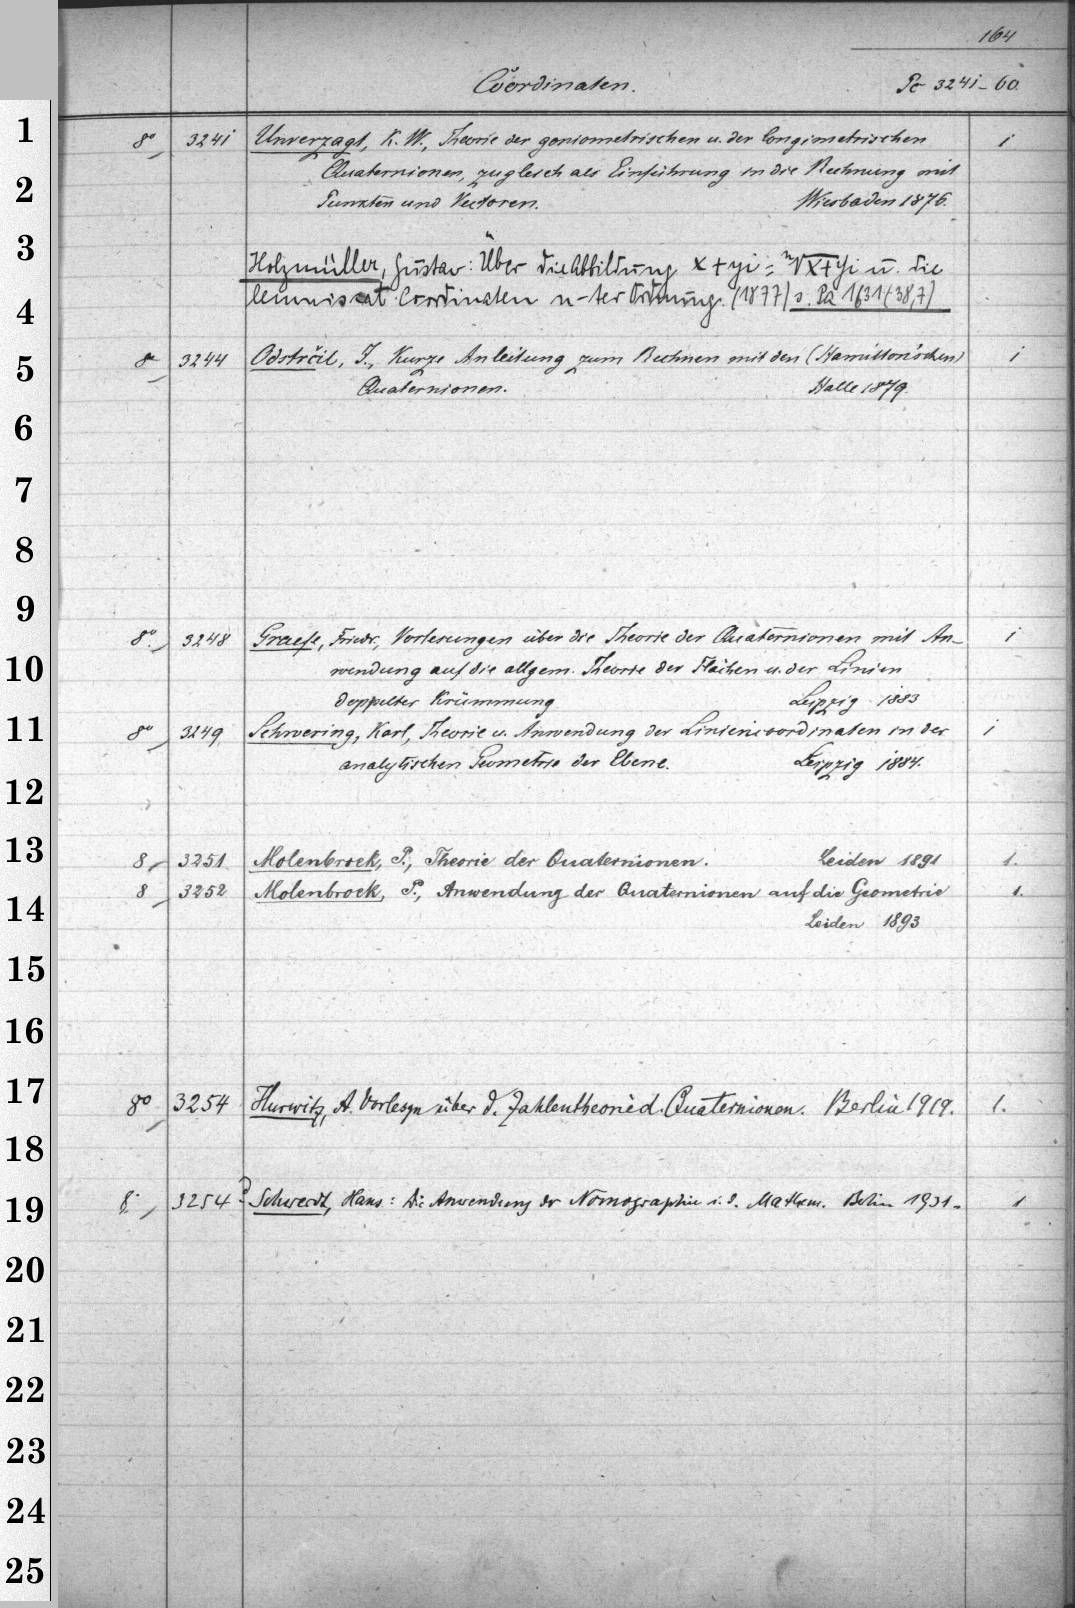 164
Coordinaten. Pc 3241-60.
1
8° 3241 Unverzagt, K. W., Theorie der goniometrischen u. der longimetrischen 1
Quaternionen, zugleich als Einführung in die Rechnung mit
2
Punkten und Vectoren. Wiesbaden 1876.
3
Holzmüller, Gustav: Über die Abbildung x + yi = ⁿ√X+Yi u. die
lemniscat. Coordinaten n-ter Ordnung. (1877) s. Pa 1631 (38,7)
4
5
8° 3244 Odstrčil, J., Kurze Anleitung zum Rechnen mit den (Hamilton'schen) 1
Quaternionen. Halle 1879.
6
7
8
9
8°. 3248 Graefe, Friedr., Vorlesungen über die Theorie der Quaternionen mit An-
10
wendung auf die allgem. Theorie der Flächen u. der Linien
doppelter Krümmung Leipzig 1883
11
8° 3249 Schwering, Karl, Theorie u. Anwendung der Liniencoordinaten in der 1
analytischen Geometrie der Ebene. Leipzig 1884.
12
13
8 3251 Molenbroek, P., Theorie der Quaternionen. Leiden 1891 1.
8 3252 Molenbroek, P., Anwendung der Quaternionen auf die Geometrie 1.
14
Leiden 1893
15
16
17
8° 3254 Hurwitz, A. Vorlesgn über d. Zahlentheorie d. Quaternionen. Berlin 1919. 1.
18
19
8° 3254 Schwerdt, Hans: Die Anwendung der Nomographie i. d. Mathem. Berlin 1931. 1
20
21
22
23
24
25